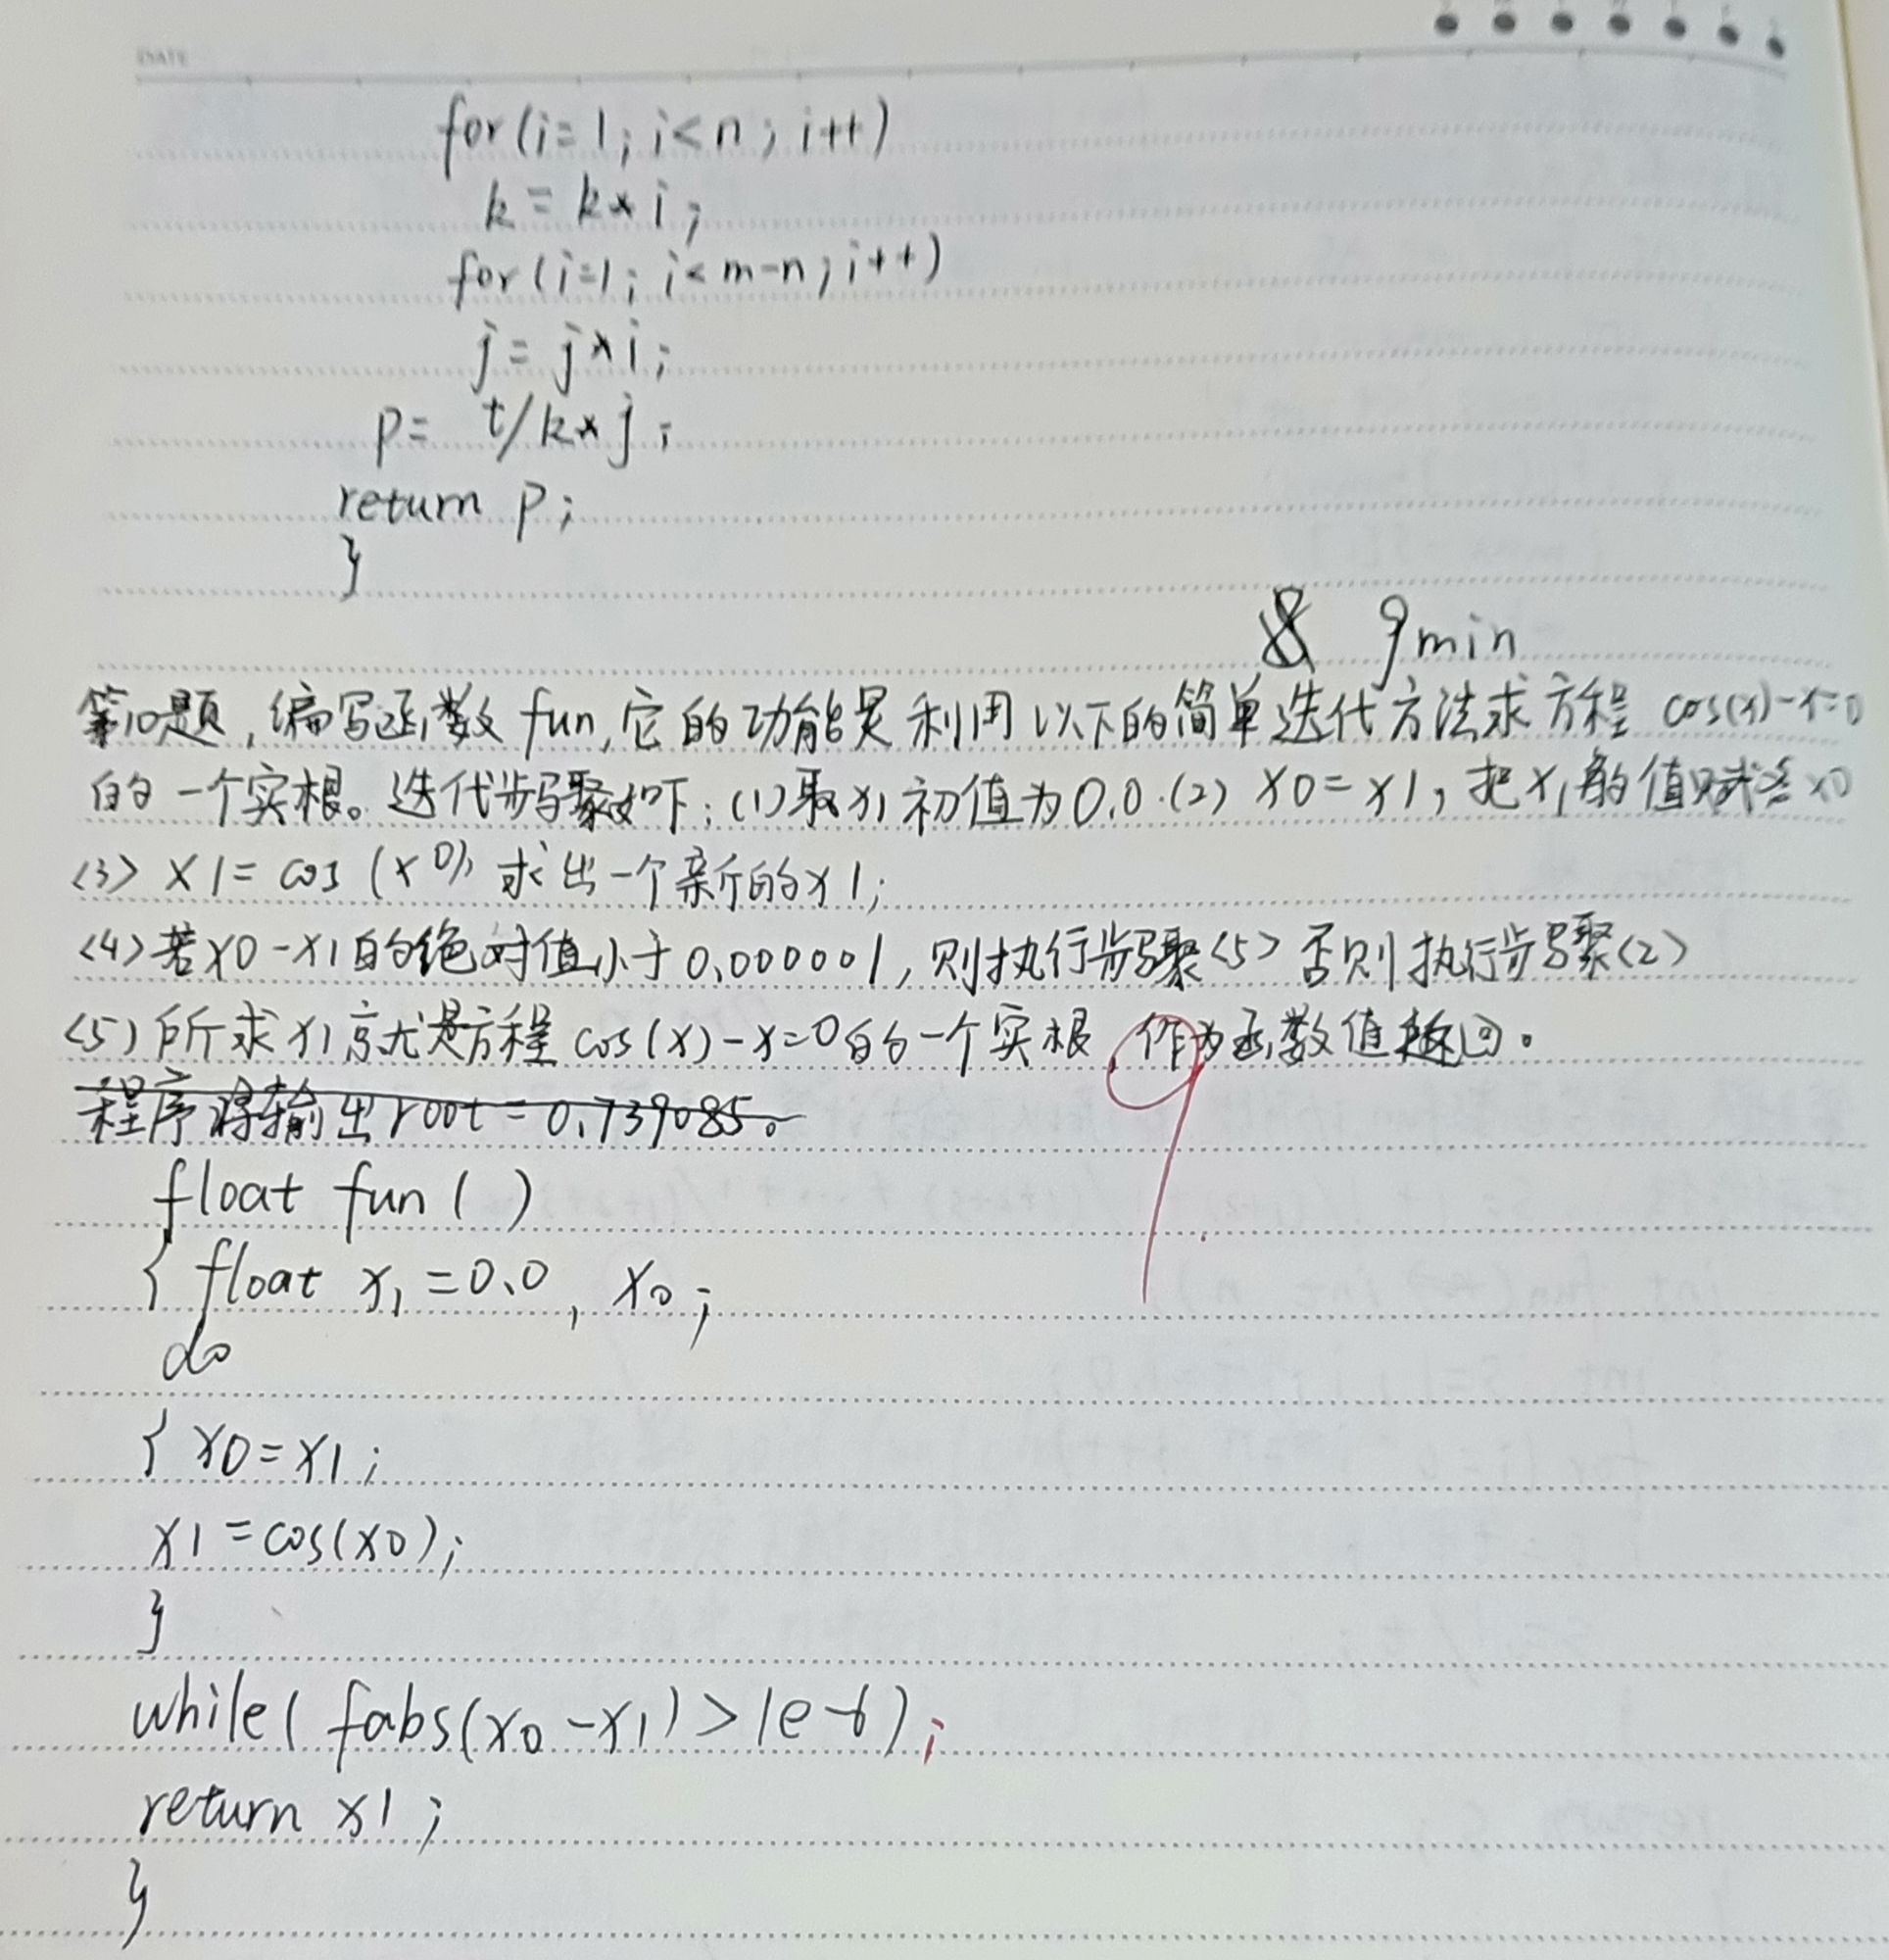 DATE
for(i=1; i<n; i++)
k=k*i;
for(i=1; i<m-n; i++)
j=j*i;
p= t/k*j;
return p;
}
& 9min
第10题,编写函数fun,它的功能是利用以下的简单迭代方法求方程cos(x)-x=0
的一个实根。迭代步骤如下:(1)取x1初值为0.0.(2) x0=x1,把x1的值赋给x0
(3) x1=cos(x0),求出一个新的x1;
(4)若x0-x1的绝对值小于0.000001,则执行步骤(5)否则执行步骤(2)
(5)所求x1就是方程cos(x)-x=0的一个实根,作为函数值返回。
9
程序将输出root=0.739085。
float fun()
{ float x1=0.0, x0;
do
{ x0=x1;
x1=cos(x0);
}
while(fabs(x0-x1)>1e-6);
return x1;
}